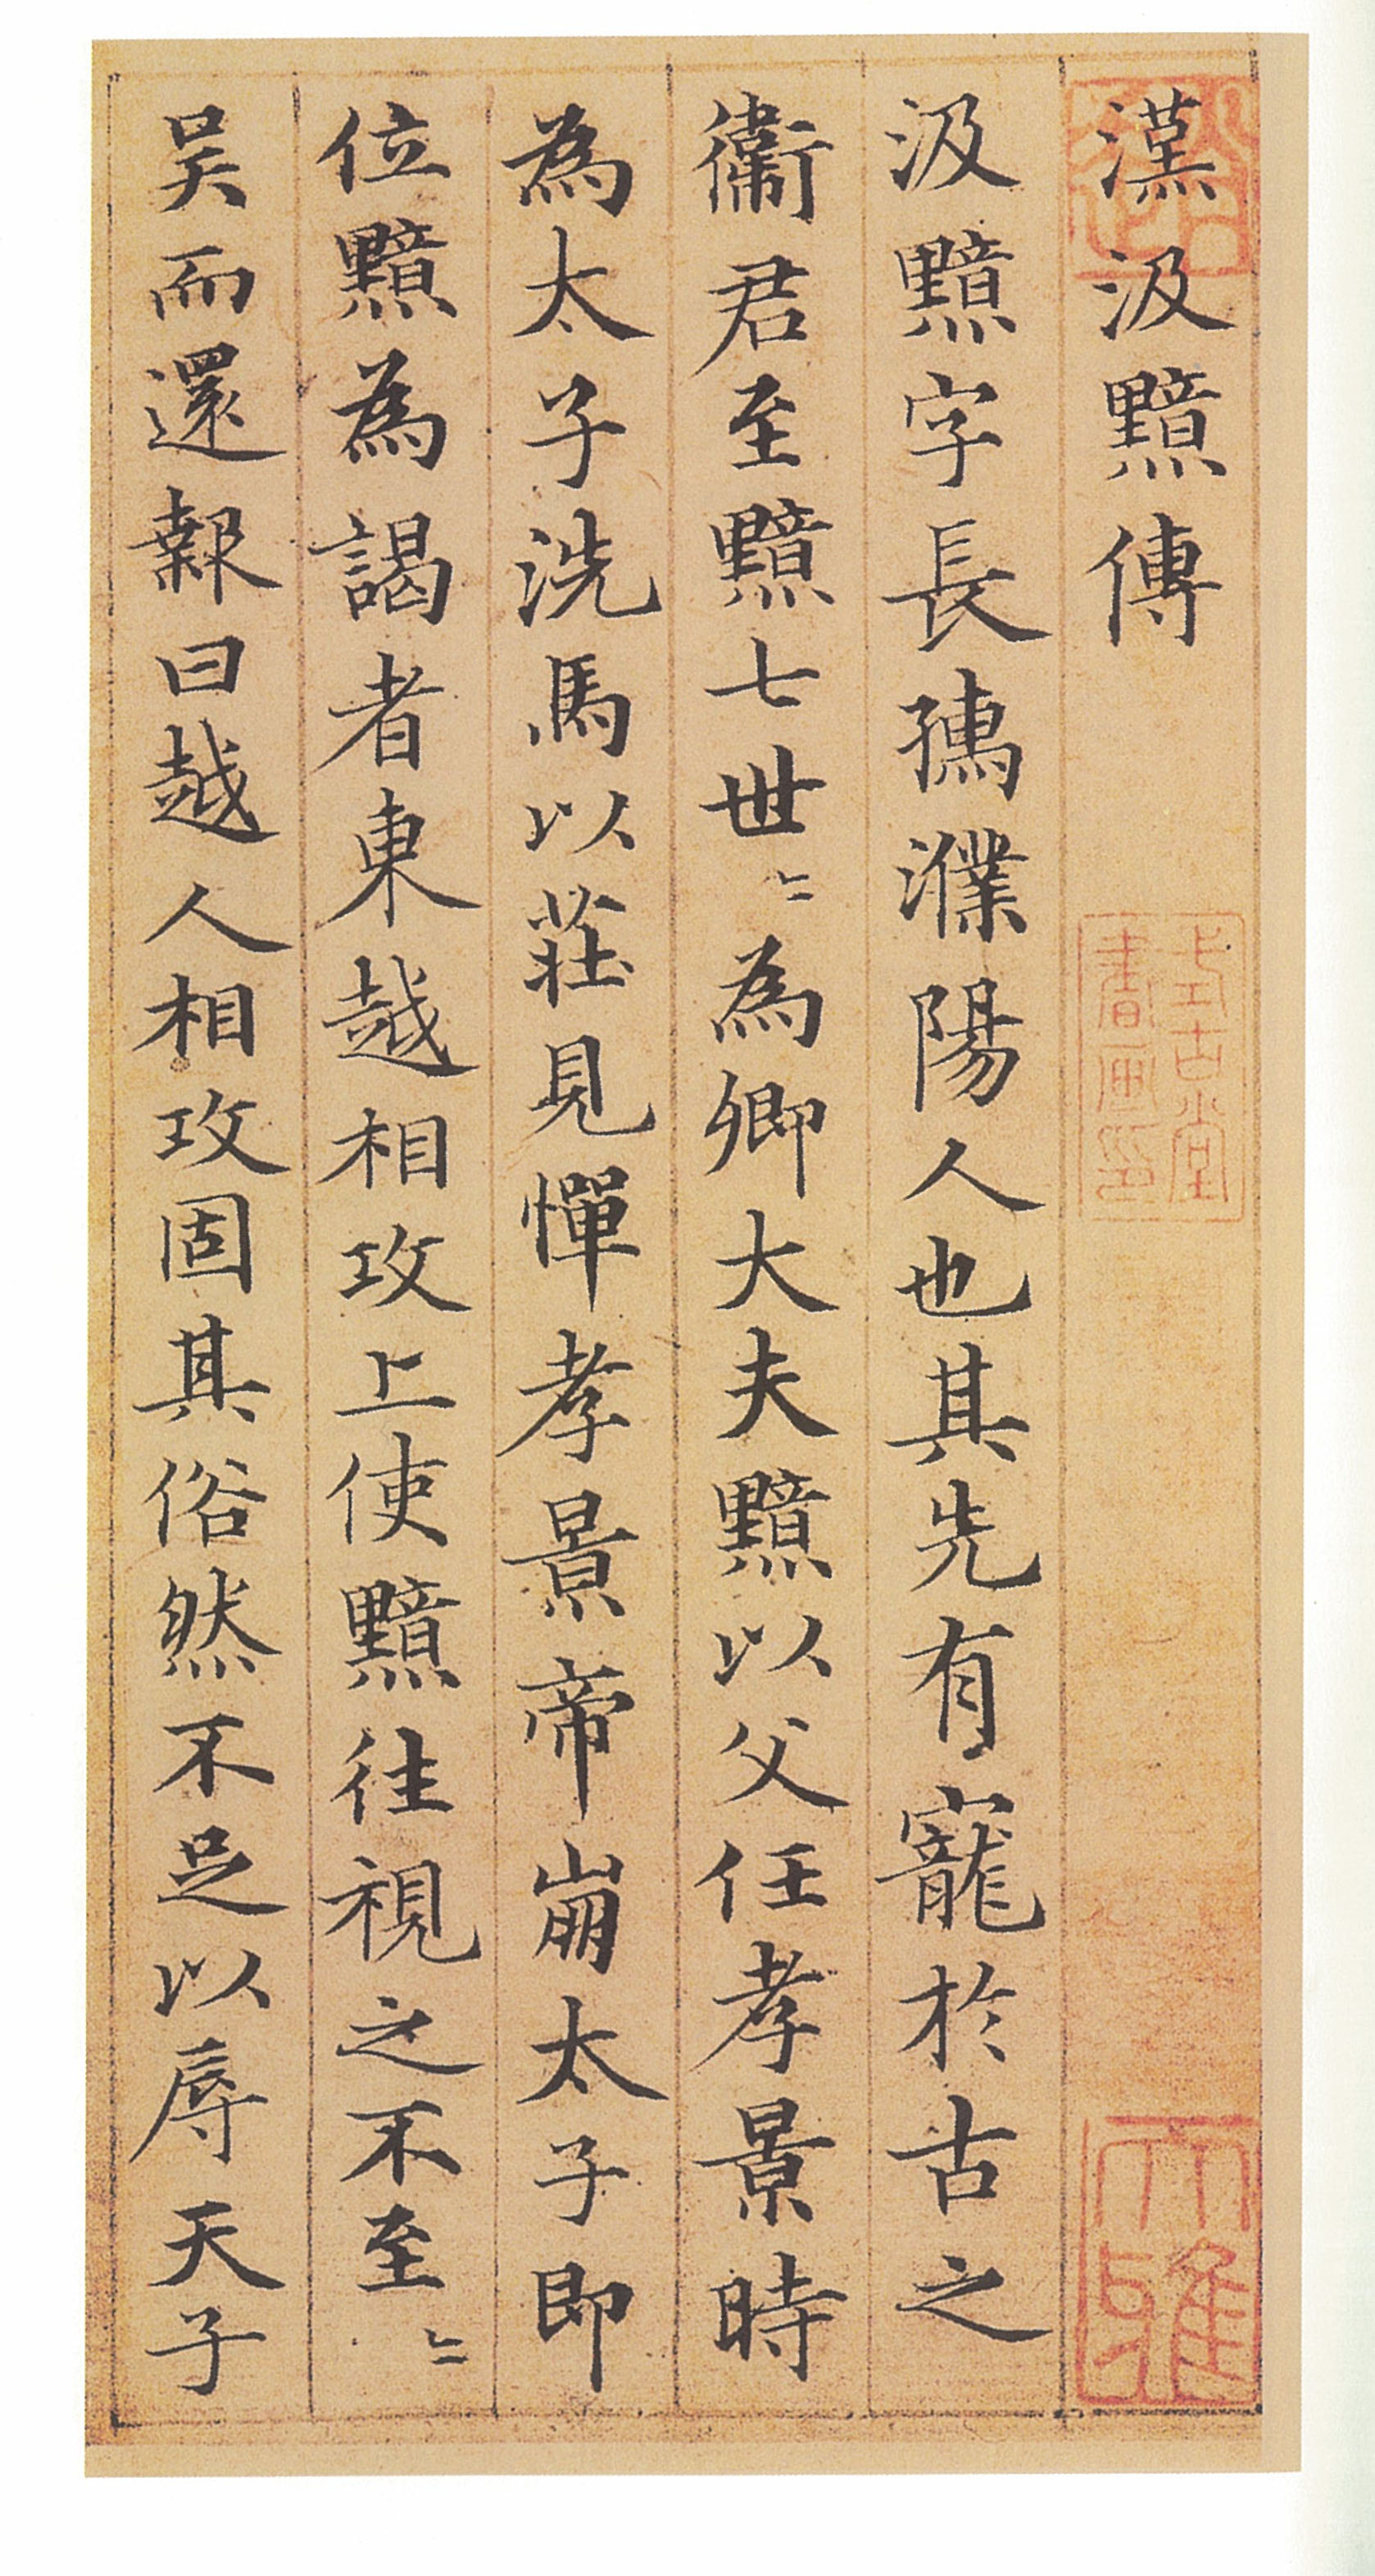 漢汲黯傳
汲黯字長孺濮陽人也其先有寵於古之
衞君至黯七世〻為卿大夫黯以父任孝景時
為太子洗馬以莊見憚孝景帝崩太子即
位黯為謁者東越相攻上使黯往視之不至〻
吳而還報曰越人相攻固其俗然不足以辱天子
式古堂
書画印
大雅